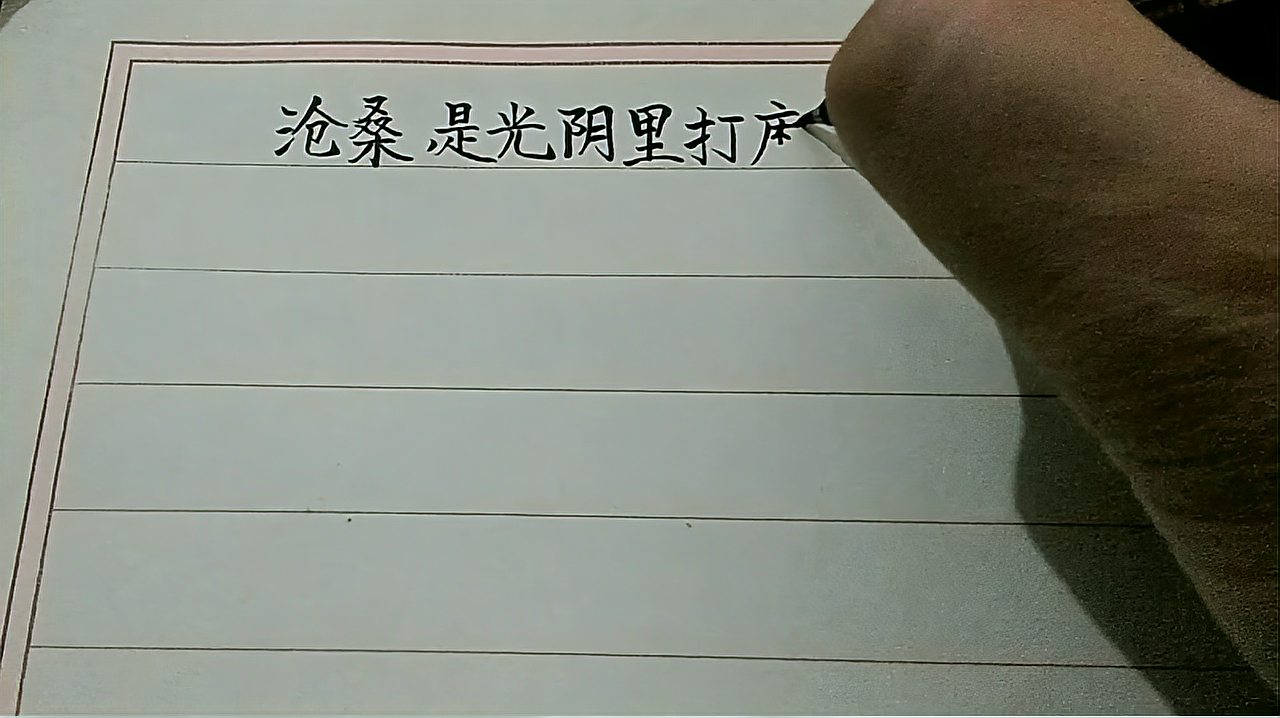 沧桑,是光阴里打